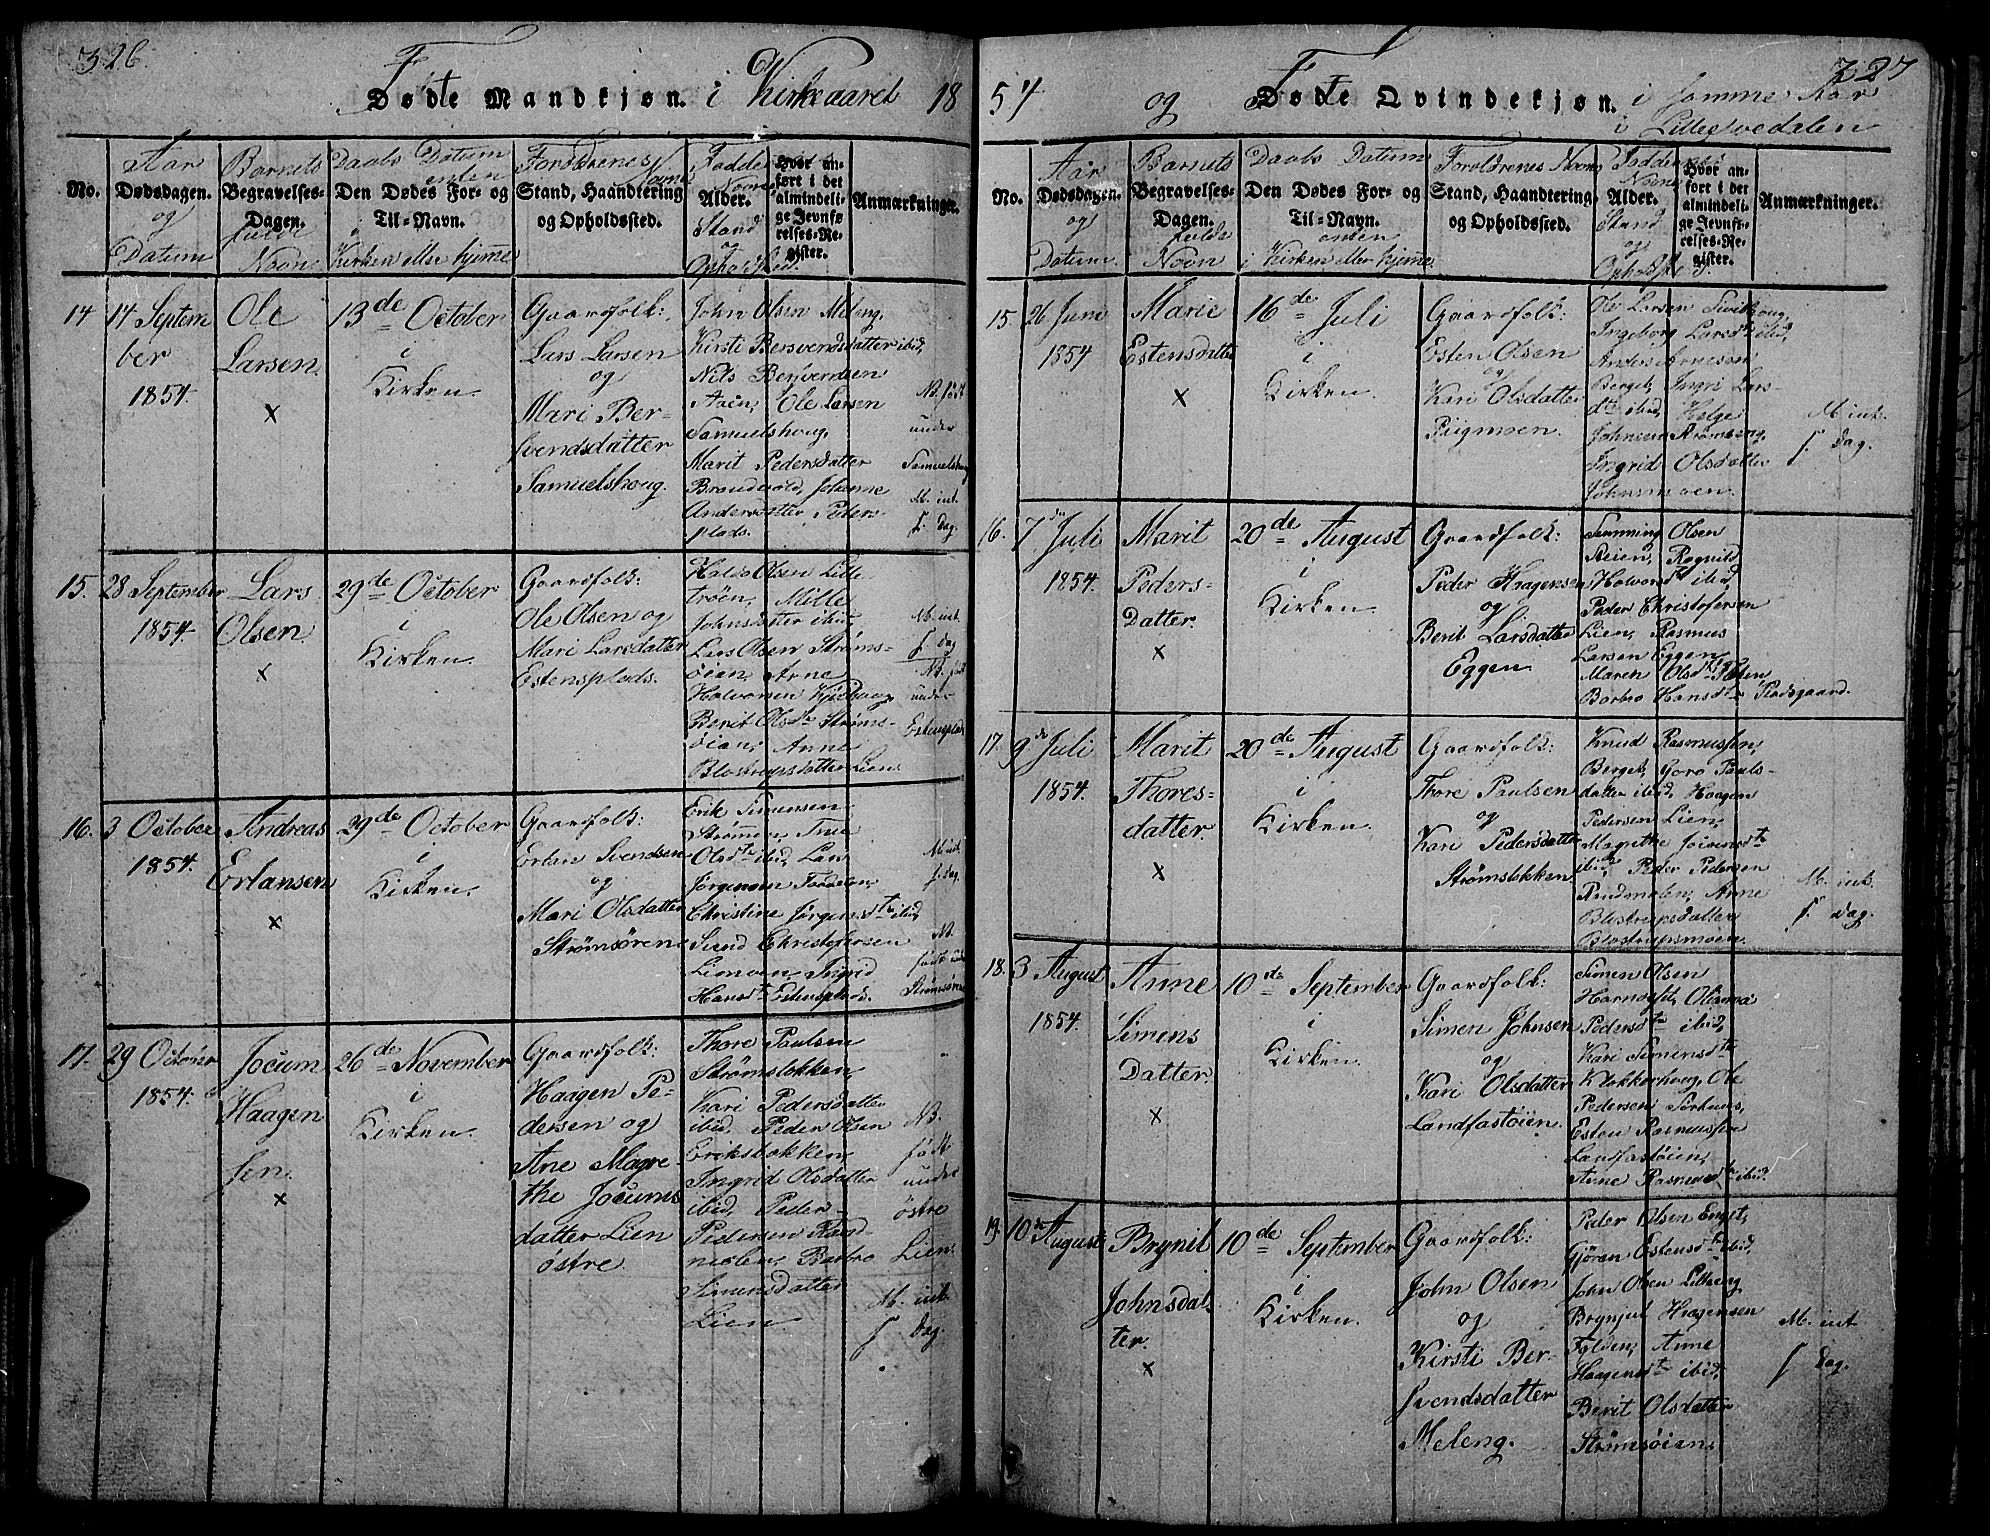 326.
Fødte Mandkjøn. i Kirkeaaret 18
No.
Aar
Dødsdagen.
og
Datum
Barnets
Begravelses-
Dagen.
fulde
Navn
Daabs Datum
enten
Den Dødes For- og
Til-Navn.
i
Kirken eller hjeme
Forældrenes Navne
Stand, Haandtering
og Opholdssted.
Fadde
Navne
Alder.
Stand
og
Opholdsted.
Hvor an-
ført i det
almindeli-
ge Jevnfø-
relses-Re-
gister.
Anmærkninger.
14
14 Septem
ber
1854.
Ole
Larsen.
×
13de October
i
Kirken.
Gaardfolk:
Lars Larsen
og
Mari Ber-
svendsdatter
Samuelshoug.
John Olsen Meleng,
Kirsti Bersvendsdatter ibid,
Nils Bersvendsen
Aaen, Ole Larsen
Samuelshoug,
Marit Pedersdatter
Brandvold, Johanne
Andersdatter Peders-
plads.
NB. født
under
Samuelshoug
M. int.
f. Dag.
15.
28 September
1854.
Lars
Olsen
×
29de October
i
Kirken.
Gaardfolk:
Ole Olsen og
Mari Larsdatter
Estensplads.
Halvo Olsen Lille-
trøen, Mille
Johnsdatter ibid,
Lars Olsen Strøms-
øien, Arne
Halvorsen
Berit Olsdtr Strøms-
øien, Anne
Blostrupsdatter Lien.
M. int.
f. Dag
NB. født
under
Estensplads
16.
3 October
1854.
Andreas
Erlansen
×
29de October
i
Kirken.
Gaardfolk:
Erlan Svendsen
og
Mari Olsdatter
Strømsøren
Erik Simensen
Strømen, True
Olsdtr ibid, Lars
Jørgensen
Christine Jørgensdtr ibid,
Svend Christofersen
Liemoen, Ingrid
Hansdtr Estensplads.
M. int.
f. Dag.
NB.
født under
Strømsøren
17.
29 October
1854.
Jocum
Haagen
sen.
×
26de November
i
Kirken.
Gaardfolk:
Haagen Pe-
dersen og
Ane Magre-
the Jocums
datter Lien
østre.
Thore Paulsen
Strømsløkken,
Kari Pedersdatter
ibid, Peder Olsen
Eriksløkken,
Ingrid Olsdatter
ibid, Peder
Pedersen Rand-
melen, Barbro
Simensdatter
Lien.
NB.
født
under
østre
Lien.
M. int.
f. Dag.
327
54 og Fødte Qvindekjøn. i samme Aar
i Lilleelvedalen
No.
Aar
Dødsdagen.
og
Datum.
Barnets
Begravelses-
Dagen.
fulde
Navn
Daabs Datum
Den Dødes For- og
Til-Navn.
enten
i Kirken eller hjeme.
Forældrenes Navne
Stand, Haandtering
og Opholdssted.
Fadderenes
Navne
Alder.
Stand
og
Opholdsted.
Hvor an-
ført i det
almindeli-
ge Jevnfø-
relses-Re-
gister.
Anmærkninger.
15.
26 Juni
1854
Marie
Estensdatter
×
16de Juli
i
Kirken.
Gaardfolk:
Esten Olsen
og
Kari Olsdatter
Ryigmoen.
Ole Larsen Sivilhoug,
Ingeborg Larsdtr ibid,
Anders Arnesen
Berget, Ingri Lars-
dtr ibid, Helge
Johnsen Strømseng,
Ingrid Olsdatter
Johnsmoen.
M. int.
f. Dag.
16.
7de Juli
1854.
Marit
Peders-
Datter.
×
20de August
i
Kirken.
Gaardfolk:
Peder Haagensen
og
Berit Larsdatter
Eggen.
Simming Olsen
Steien, Ragnild
Halvorsdtr ibid,
Peder Christofersen
Lien, Rasmus
Larsen Eggen
Maren Olsdtr
Barbro Hansdtr Pladsgaard.
17.
9de Juli
1854.
Marit
Thores-
datter.
×
20de August
i
Kirken.
Gaardfolk:
Thore Paulsen
og
Kari Pedersdatter
Strømsløkken
Knud Rasmussen,
Berget, Goro Pauls-
datter ibid, Haagen
Pedersen Lien,
Magrethe Jocumsdtr
ibid, Peder Pedersen
Randmelen, Anne
Blostrupsdatter
Blostrupsmoen.
M. int.
f. Dag.
18.
3 August
1854.
Anne
Simens
Datter.
×
10de September
i
Kirken.
Gaardfolk:
Simen Johnsen
og
Kari Olsdatter
Landfastøien.
Simen Olsen
Hornæset, Oliana
Pedersdtr ibid,
Kari Simensdtr
Klokkerhoug, Ole
Pedersen
Esten Rasmussen
Landfastøien,
Anne Rasmusdtr ibid.
19.
10de August
Brynil
Johnsdat-
ter.
×
10de September
i
Kirken.
Gaardfolk:
John Olsen
og
Kirsti Ber-
svendsdatter
Meleng.
Peder Olsen Enget,
Gjøran Estensdtr ibid,
John Olsen Lilleeng
Brynjul Haagensen
Folden, Anne
Haagensdtr ibid,
Berit Olsdatter
Strømsøien.
M. int
f. Dag.